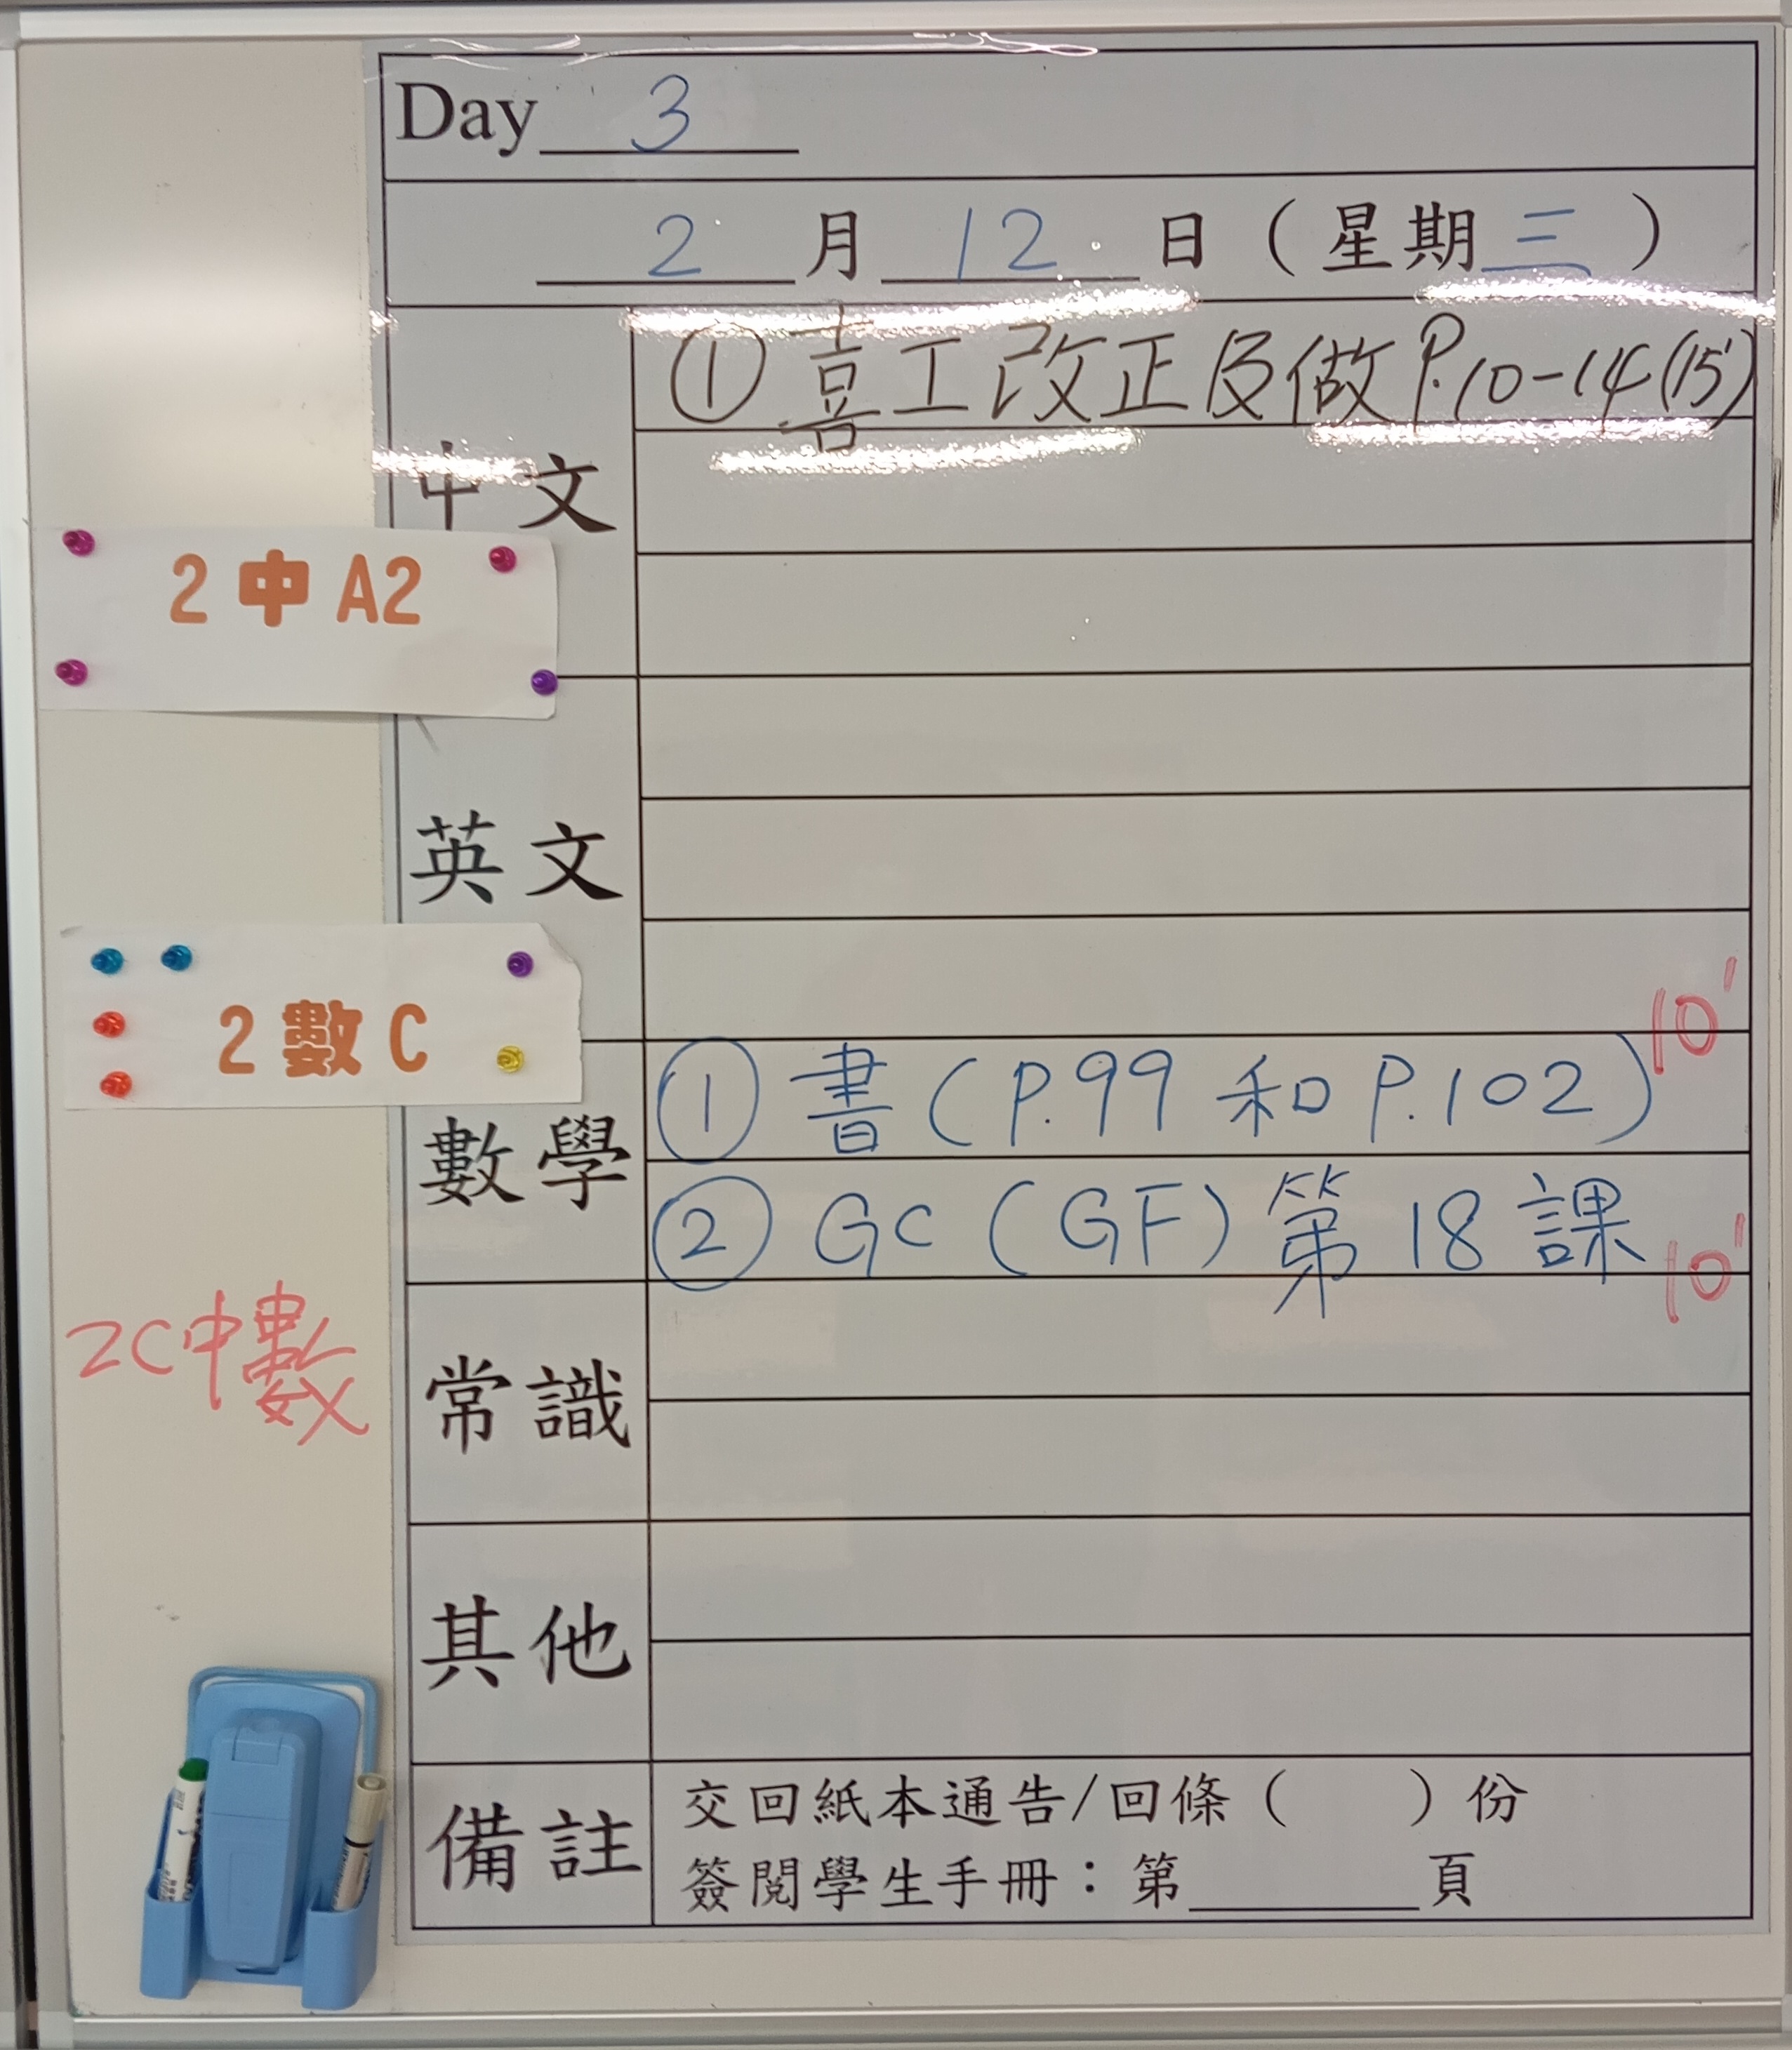 Day 3
2 月 12 日 ( 星期 三 )
中文
① 喜工改正及做 P.10-14 (15')
2 中 A2
英文
2 數 C
數學
① 書 (P.99 和 P.102) 10'
② GC (GF) 第 18 課 10'
2C中數
常識
其他
備註
交回紙本通告/回條 ( ) 份
簽閱學生手冊：第 頁